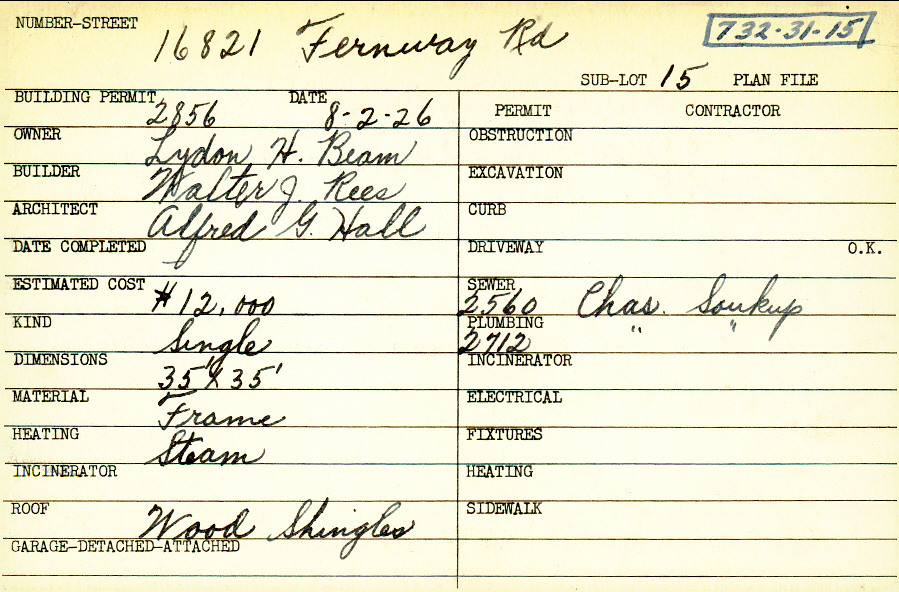 NUMBER-STREET 16821 Fernway Rd 732-31-15
SUB-LOT 15 PLAN FILE
BUILDING PERMIT 2856 DATE 8-2-26
PERMIT CONTRACTOR
OWNER Lydon H. Beam
OBSTRUCTION
BUILDER Walter J. Rees
EXCAVATION
ARCHITECT Alfred G. Hall
CURB
DATE COMPLETED
DRIVEWAY O.K.
ESTIMATED COST $12,000
SEWER 2560 Chas. Soukup
KIND Single
PLUMBING 2712 " "
DIMENSIONS 35' X 35'
INCINERATOR
MATERIAL Frame
ELECTRICAL
HEATING Steam
FIXTURES
INCINERATOR
HEATING
ROOF Wood Shingles
SIDEWALK
GARAGE-DETACHED-ATTACHED